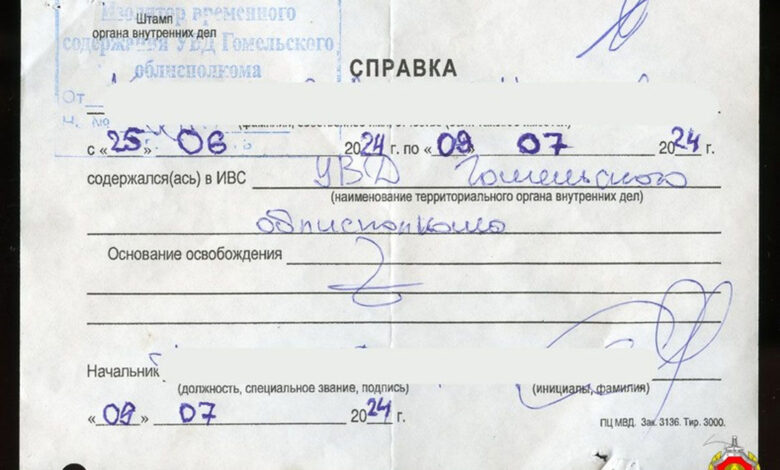 Штамп
органа внутренних дел
Изолятор временного
содержания УВД Гомельского
облисполкома
От
СПРАВКА
с «25» 06 2024 г. по «09» 07 2024 г.
содержался(ась) в ИВС УВД Гомельского
(наименование территориального органа внутренних дел)
облисполкома
Основание освобождения
Начальник
(должность, специальное звание, подпись) (инициалы, фамилия)
«09» 07 2024 г.
ПЦ МВД. Зак. 3136. Тир. 3000.